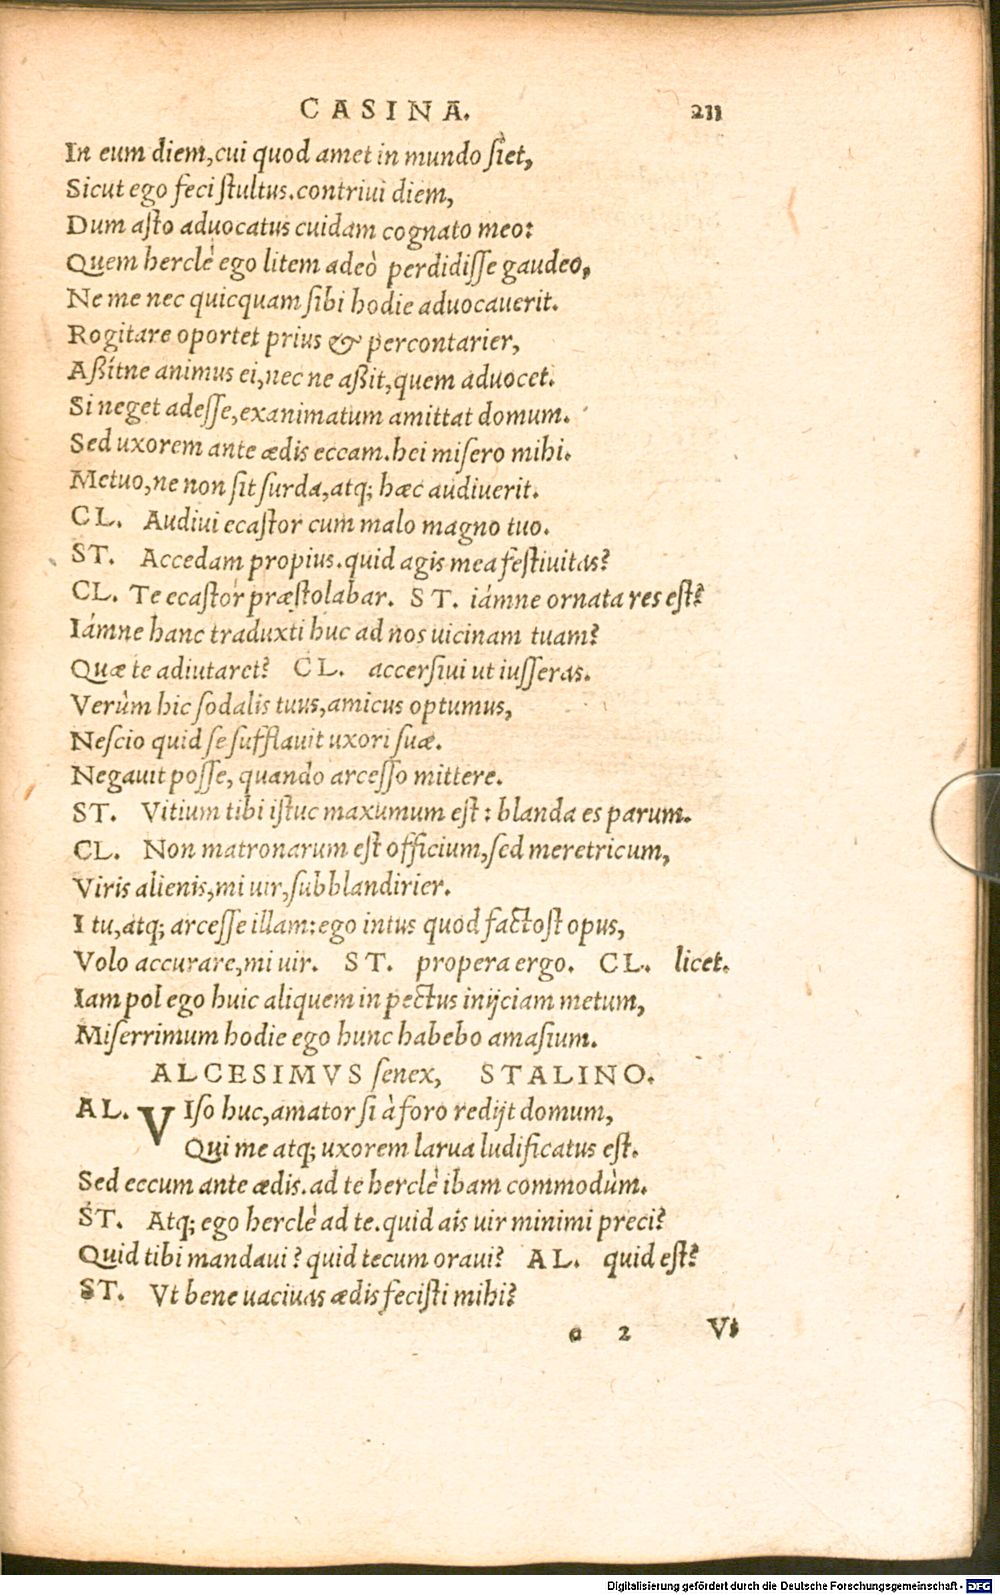 CASINA. 211
In eum diem,cui quod amet in mundo ſiet,
Sicut ego feci ſtultus.contriui diem,
Dum aſto aduocatus cuidam cognato meo:
Quem herclè ego litem adeò perdidiſſe gaudeo,
Ne me nec quicquam ſibi hodie aduocauerit.
Rogitare oportet prius & percontarier,
Aßítne animus ei,nec ne aßit,quem aduocet.
Si neget adeſſe,exanimatum amittat domum.
Sed uxorem ante ædis eccam.hei miſero mihi.
Metuo,ne non ſit ſurda,atq; hæc audiuerit.
CL. Audiui ecaſtor cum malo magno tuo.
ST. Accedam propius.quid agis mea feſtiuitas?
CL. Te ecaſtor præſtolabar. ST. iámne ornata res eſt?
Iámne hanc traduxti huc ad nos uicinam tuam?
Quæ te adiutaret? CL. accerſiui ut iuſſeras.
Verùm hic ſodalis tuus,amicus optumus,
Neſcio quid ſe ſufflauit uxori ſuæ.
Negauit poſſe, quando arceſſo mittere.
ST. Vitium tibi iſtuc maxumum eſt: blanda es parum.
CL. Non matronarum eſt officium,ſed meretricum,
Viris alienis,mi uir,ſubblandirier.
I tu,atq; arceſſe illam:ego intus quod factoſt opus,
Volo accurare,mi uir. ST. propera ergo. CL. licet.
Iam pol ego huic aliquem in pectus inijciam metum,
Miſerrimum hodie ego hunc habebo amaſium.
ALCESIMVS ſenex, STALINO.
AL. VIſo huc,amator ſi à foro redijt domum,
Qui me atq; uxorem larua ludificatus eſt.
Sed eccum ante ædis.ad te herclè ibam commodùm.
ST. Atq; ego herclè ad te.quid ais uir minimi preci?
Quid tibi mandaui? quid tecum oraui? AL. quid eſt?
ST. Vt bene uaciuas ædis feciſti mihi?
o 2 Vt
Digitalisierung gefördert durch die Deutsche Forschungsgemeinschaft - DFG